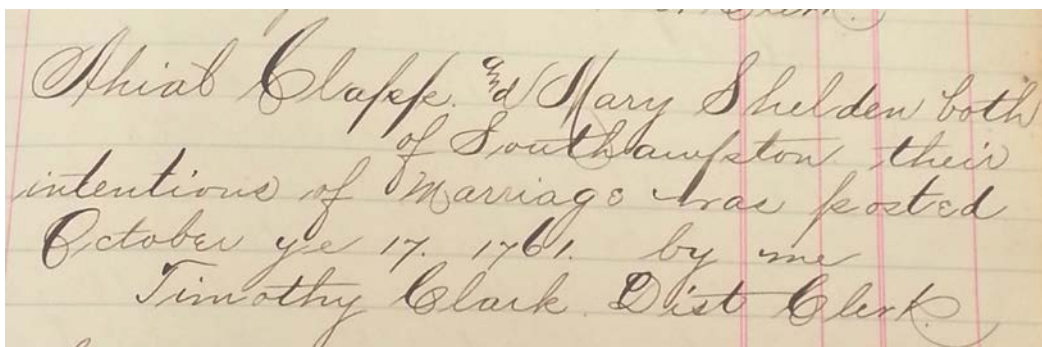 Ahiab Clapp. and Mary Shelden both
of Southampton their
intentions of Marriage was posted
October ye 17. 1761. by me
Timothy Clark. Dist Clerk.